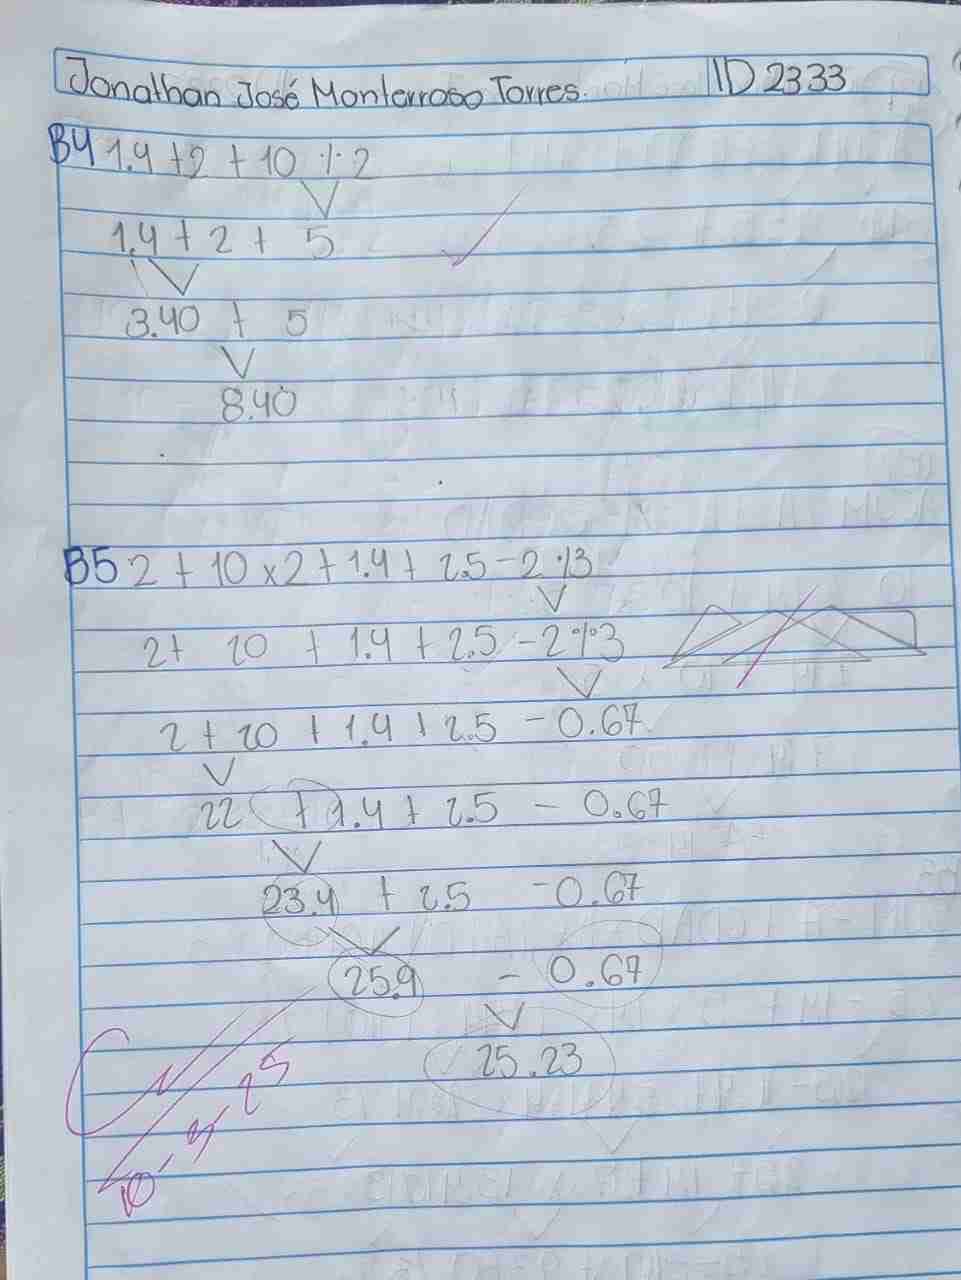 Jonathan José Monterroso Torres. ID 2333
B4 1.4 + 2 + 10 ÷ 2
1.4 + 2 + 5
3.40 + 5
8.40
B5 2 + 10 x 2 + 1.4 + 2.5 - 2 ÷ 3
2 + 20 + 1.4 + 2.5 - 2 ÷ 3
2 + 20 + 1.4 + 2.5 - 0.67
22 + 1.4 + 2.5 - 0.67
23.4 + 2.5 - 0.67
25.9 - 0.67
25.23